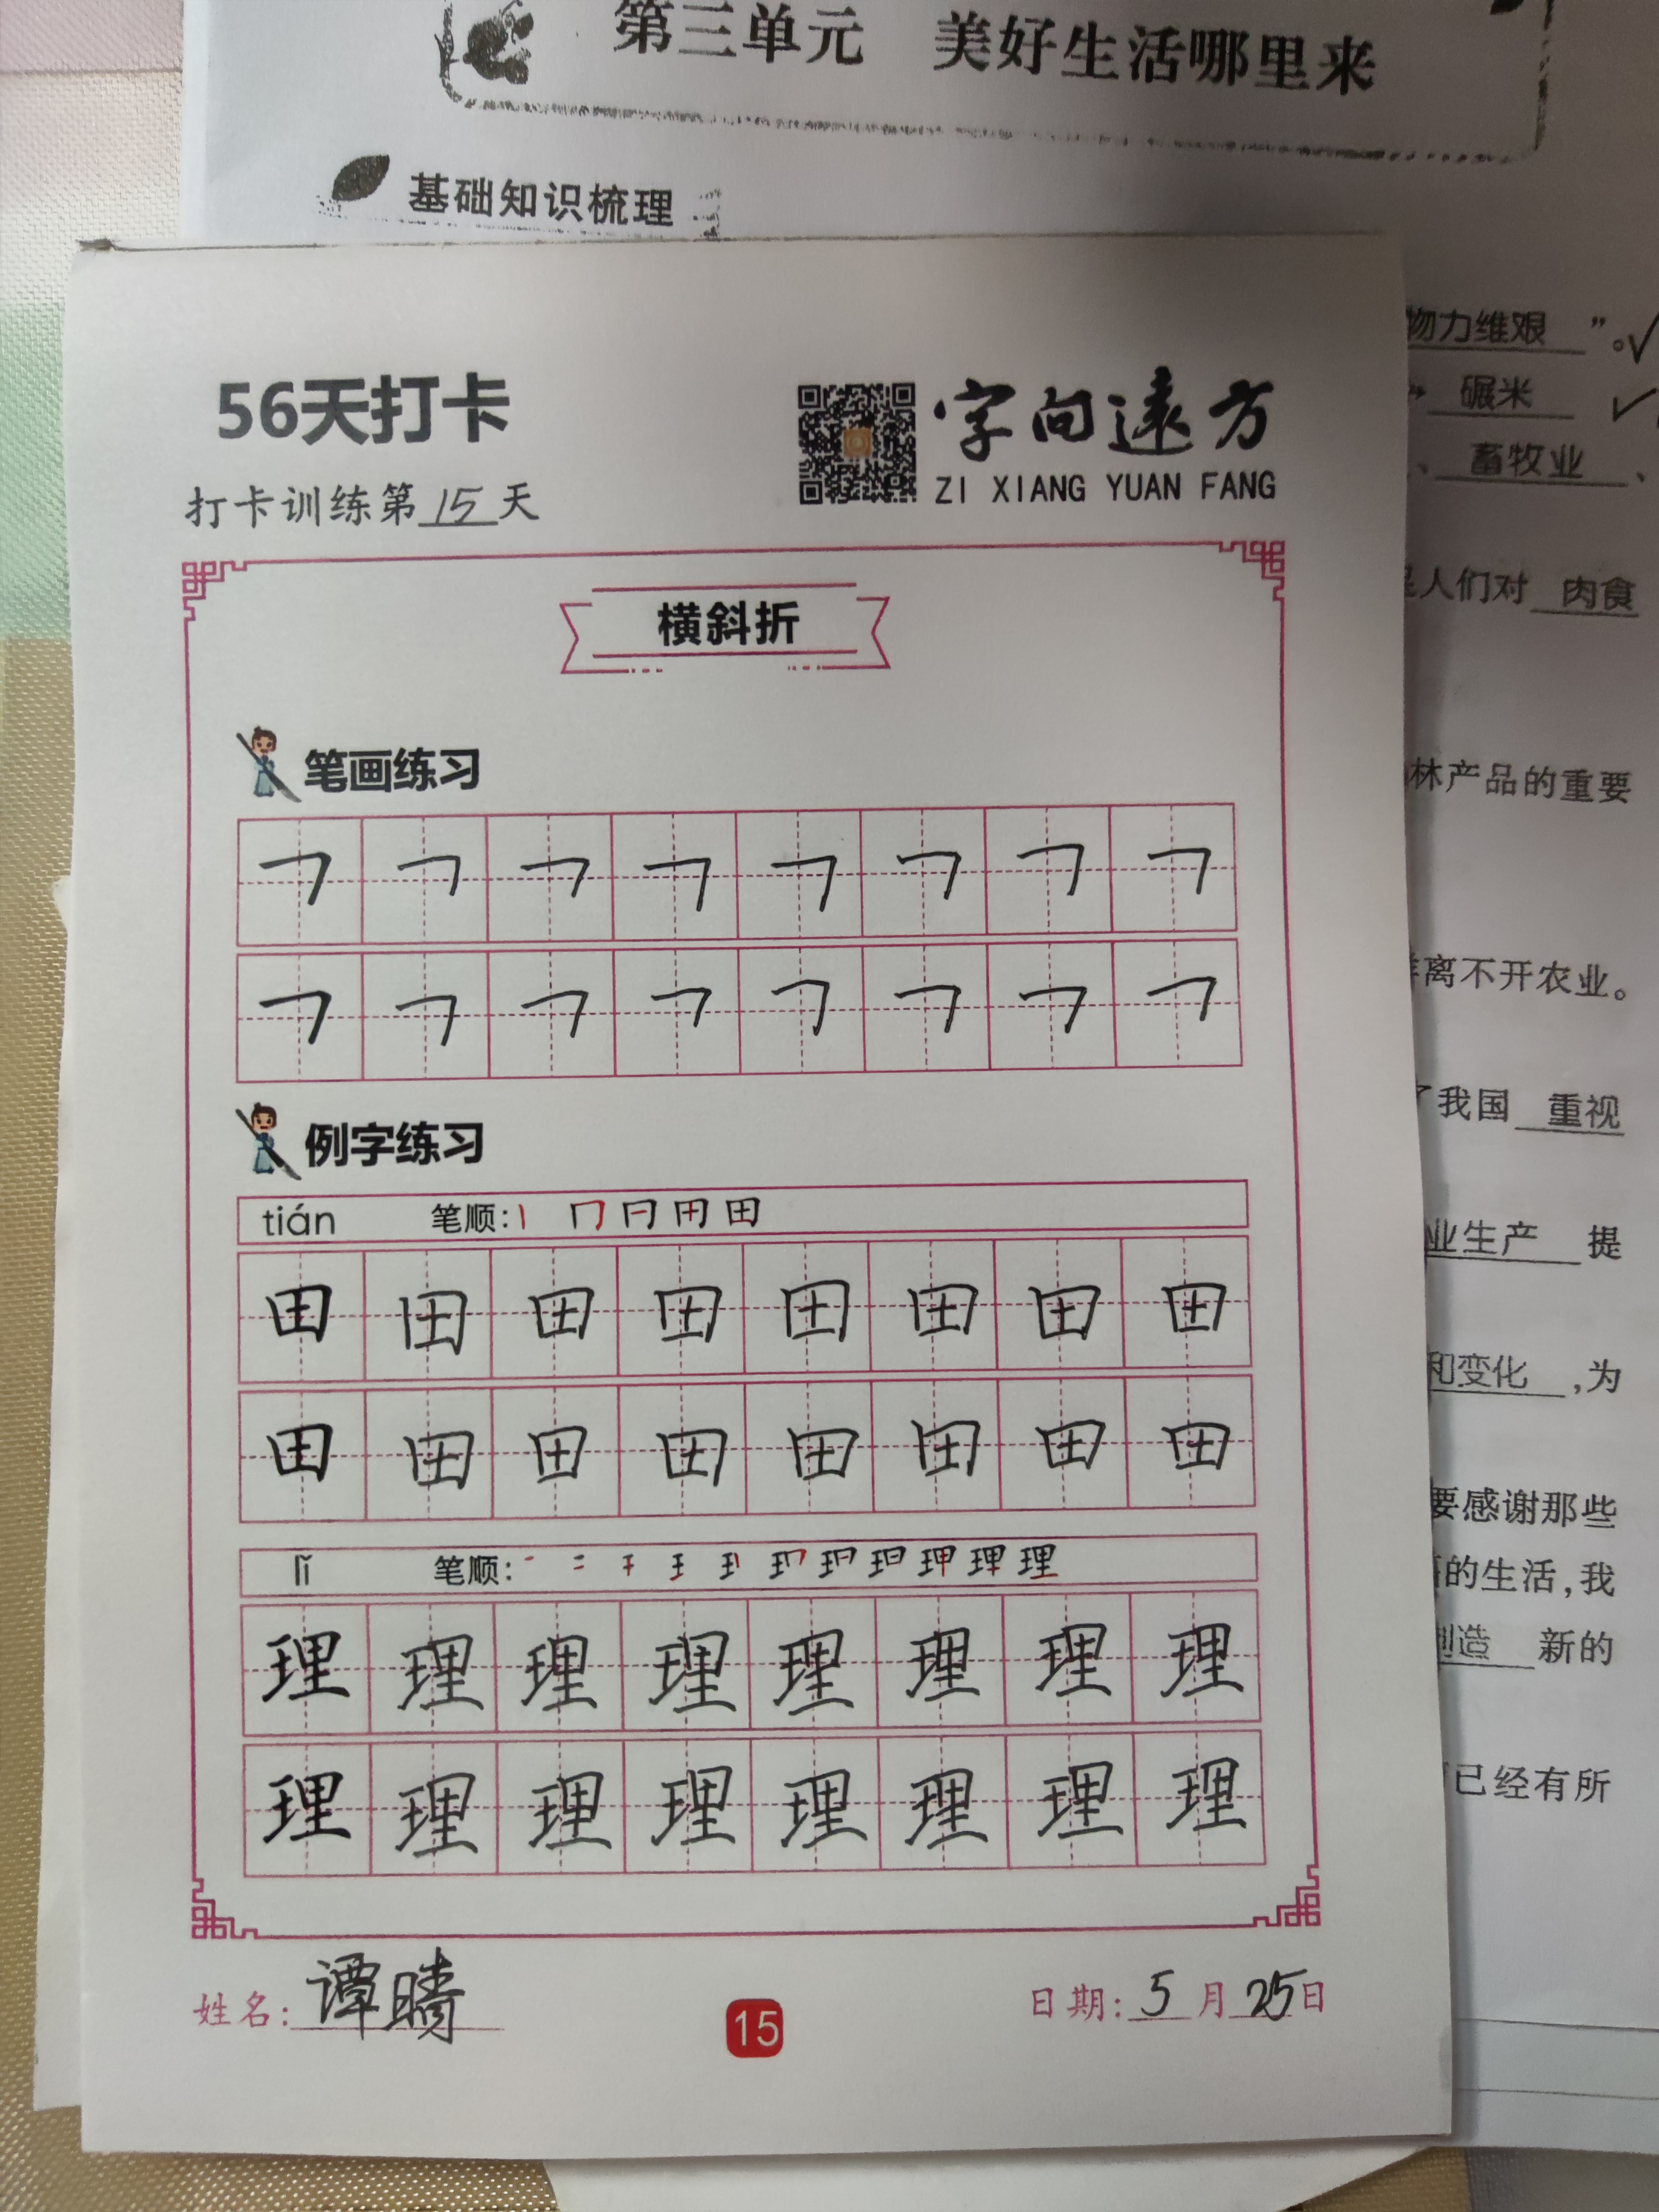 第三单元 美好生活哪里来
基础知识梳理
物力维艰 ”。
碾米
、 畜牧业 、
人们对 肉食
林产品的重要
离不开农业。
我国 重视
业生产 提
和变化 ,为
要感谢那些
的生活,我
造 新的
已经有所
56天打卡
字向遠方
ZI XIANG YUAN FANG
打卡训练第 15 天
横斜折
笔画练习
㇕ ㇕ ㇕ ㇕ ㇕ ㇕ ㇕ ㇕
㇕ ㇕ ㇕ ㇕ ㇕ ㇕ ㇕ ㇕
例字练习
tián 笔顺: 田
田 田 田 田 田 田 田 田
田 田 田 田 田 田 田 田
lǐ 笔顺: 理
理 理 理 理 理 理 理 理
理 理 理 理 理 理 理 理
姓名: 谭晴
15
日期: 5 月 25 日